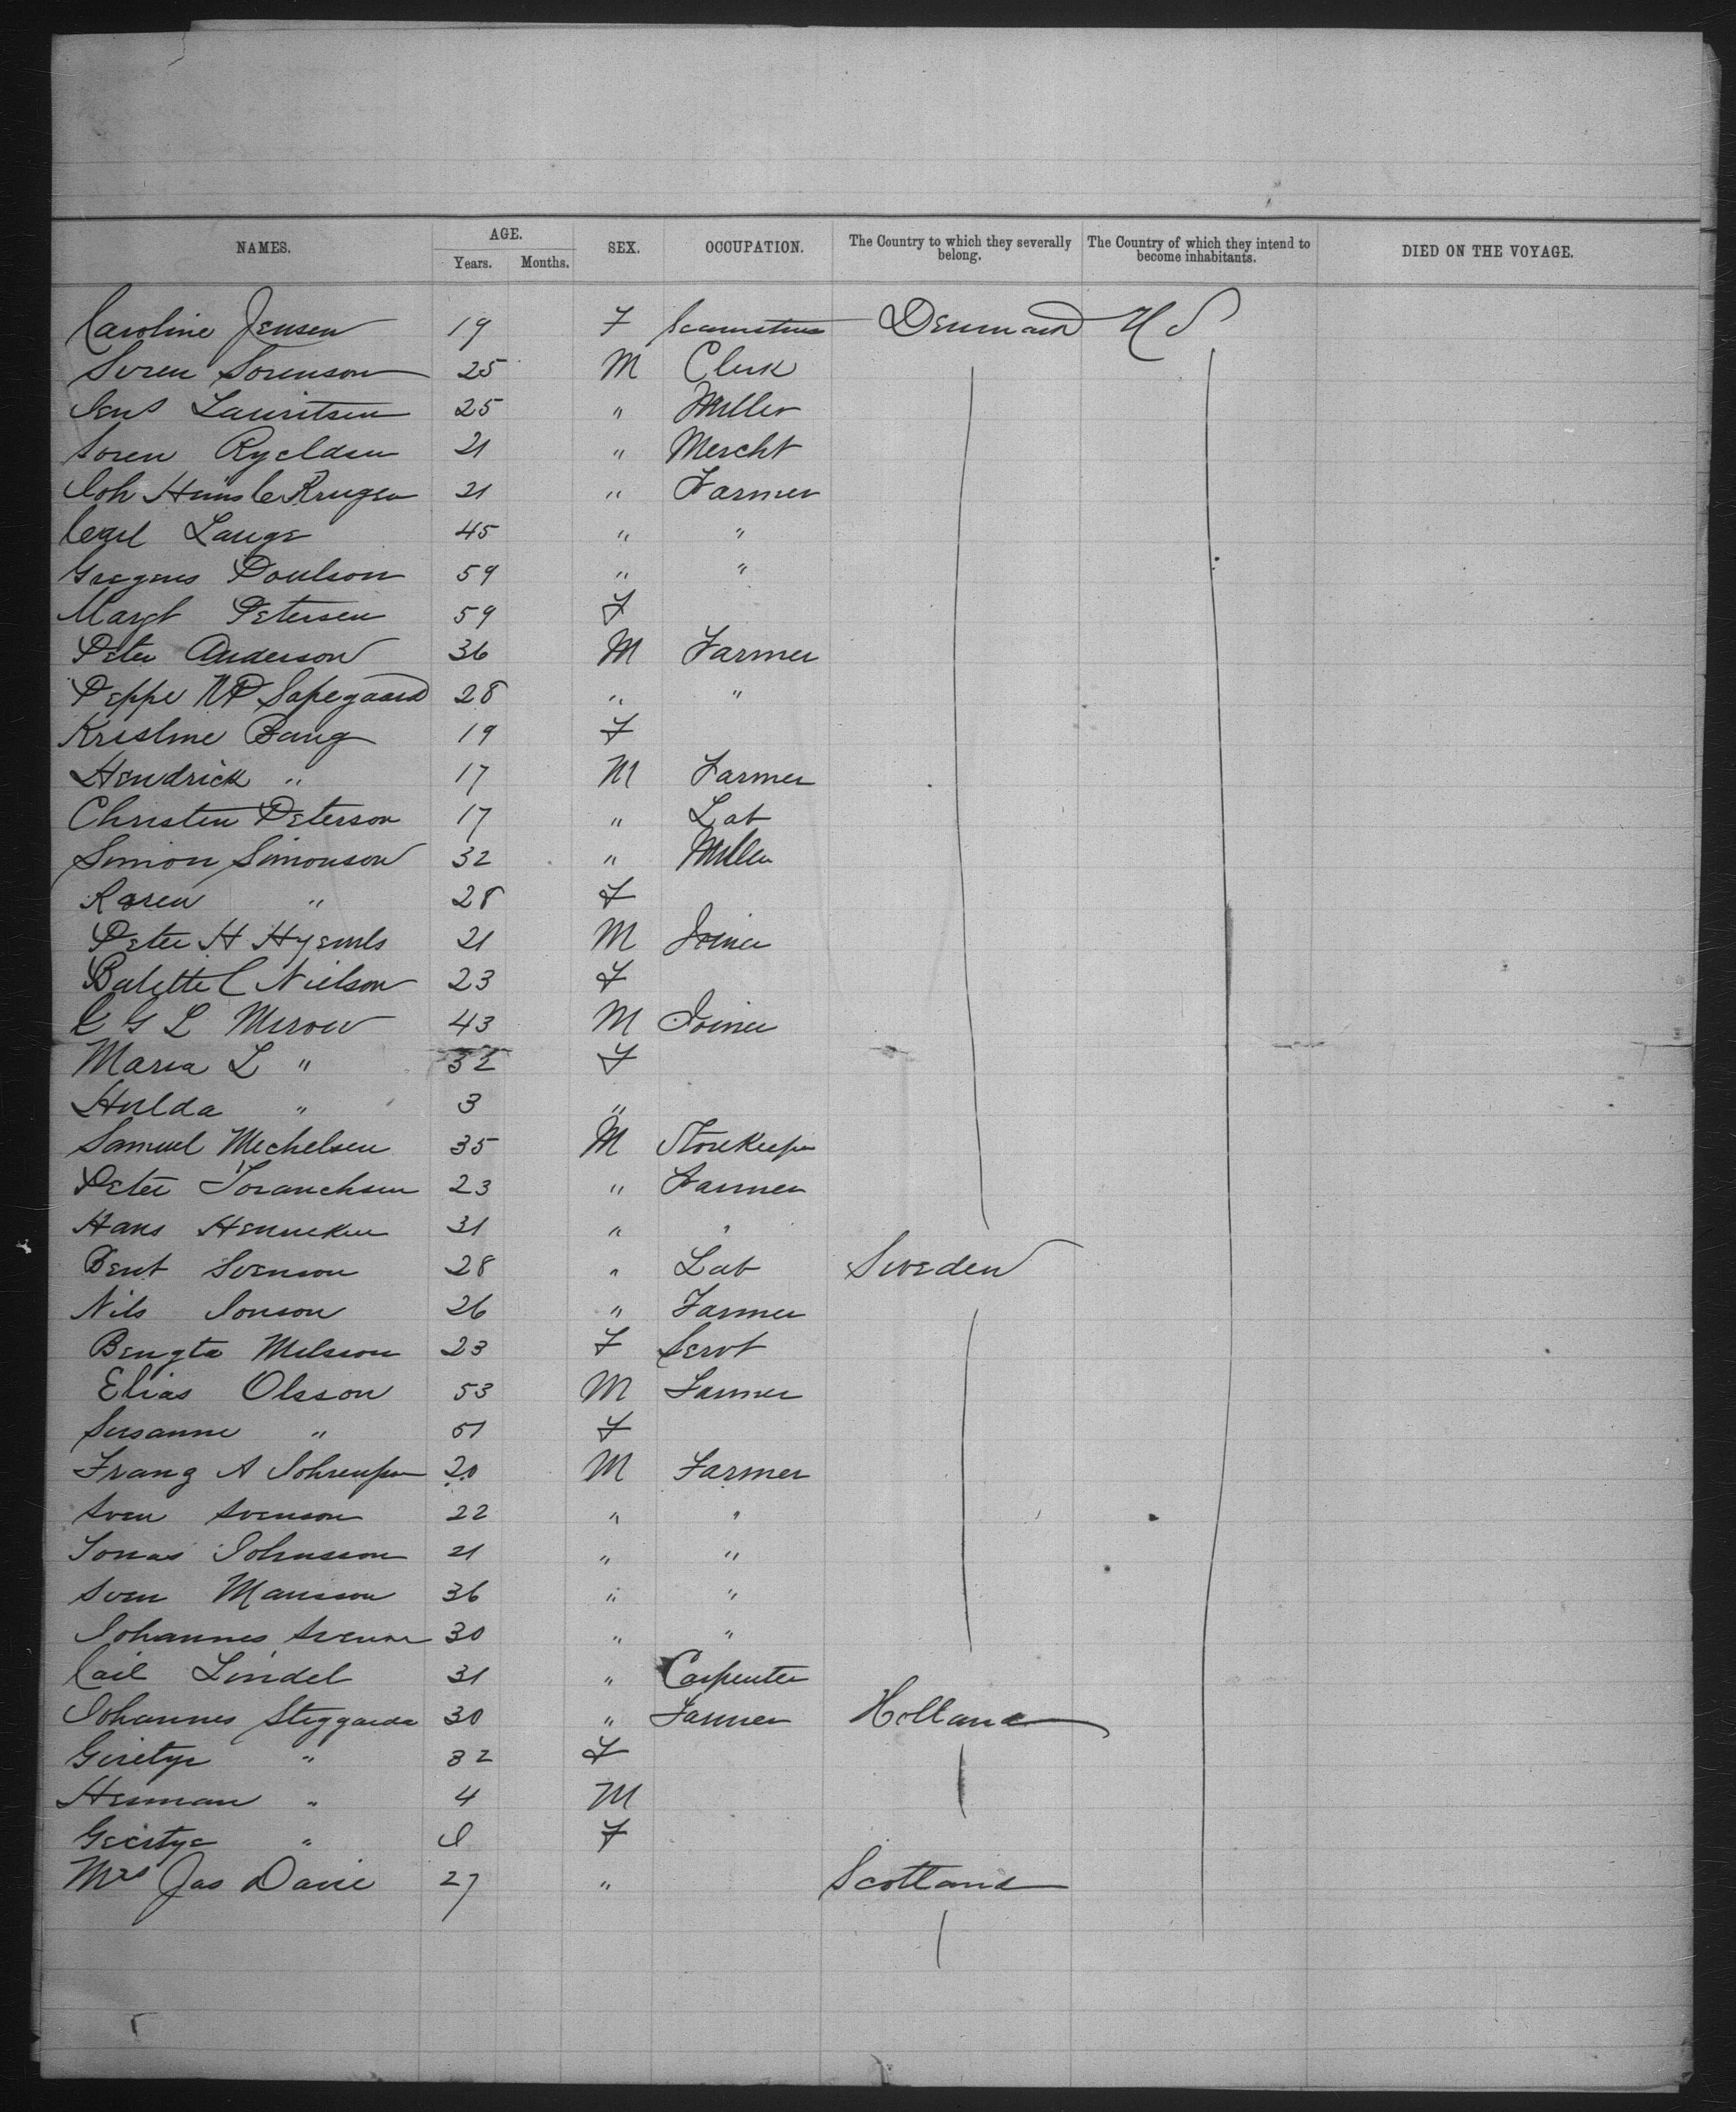 NAMES. AGE. SEX. OCCUPATION. The Country to which they severally belong. The Country of which they intend to become inhabitants. DIED ON THE VOYAGE.
Years. Months.
Caroline Jensen 19 F Denmark U S
Soren Sorenson 25 M Clerk
Jens Lauritsen 25 " Miller
Soren 21 " Mercht
Joh 21 " Farmer
Carl Lange 45 " "
Gregers Poulson 59 " "
Margt Petersen 59 F
Peter Anderson 36 M Farmer
Peppe N P 28 " "
Kristine Bang 19 F
Hendrick " 17 M Farmer
Christen Peterson 17 " Lab
Simon Simonson 32 " Miller
Karen " 28 F
Peter H 21 M Joiner
C Nielson 23 F
C G L 43 M Joiner
Maria L " 32 F
Hulda " 3 "
Samuel Mechelsen 35 M Storekeeper
Peter 23 " Farmer
Hans 31 " "
Bent Svenson 28 " Lab Sweden
Nils Jonson 26 " Farmer
Bengta 23 F Servt
Elias Olsson 53 M Farmer
Susanne " 51 F
Franz A 20 M Farmer
Sven Svenson 22 " "
Jonas Johnsson 21 " "
Sven Mansson 36 " "
Johannes 30 " "
Carl Lindel 31 " Carpenter
Johannes Steggarda 30 " Farmer Holland
" 32 F
Herman " 4 M
" F
Mrs Jas Davie 27 " Scotland